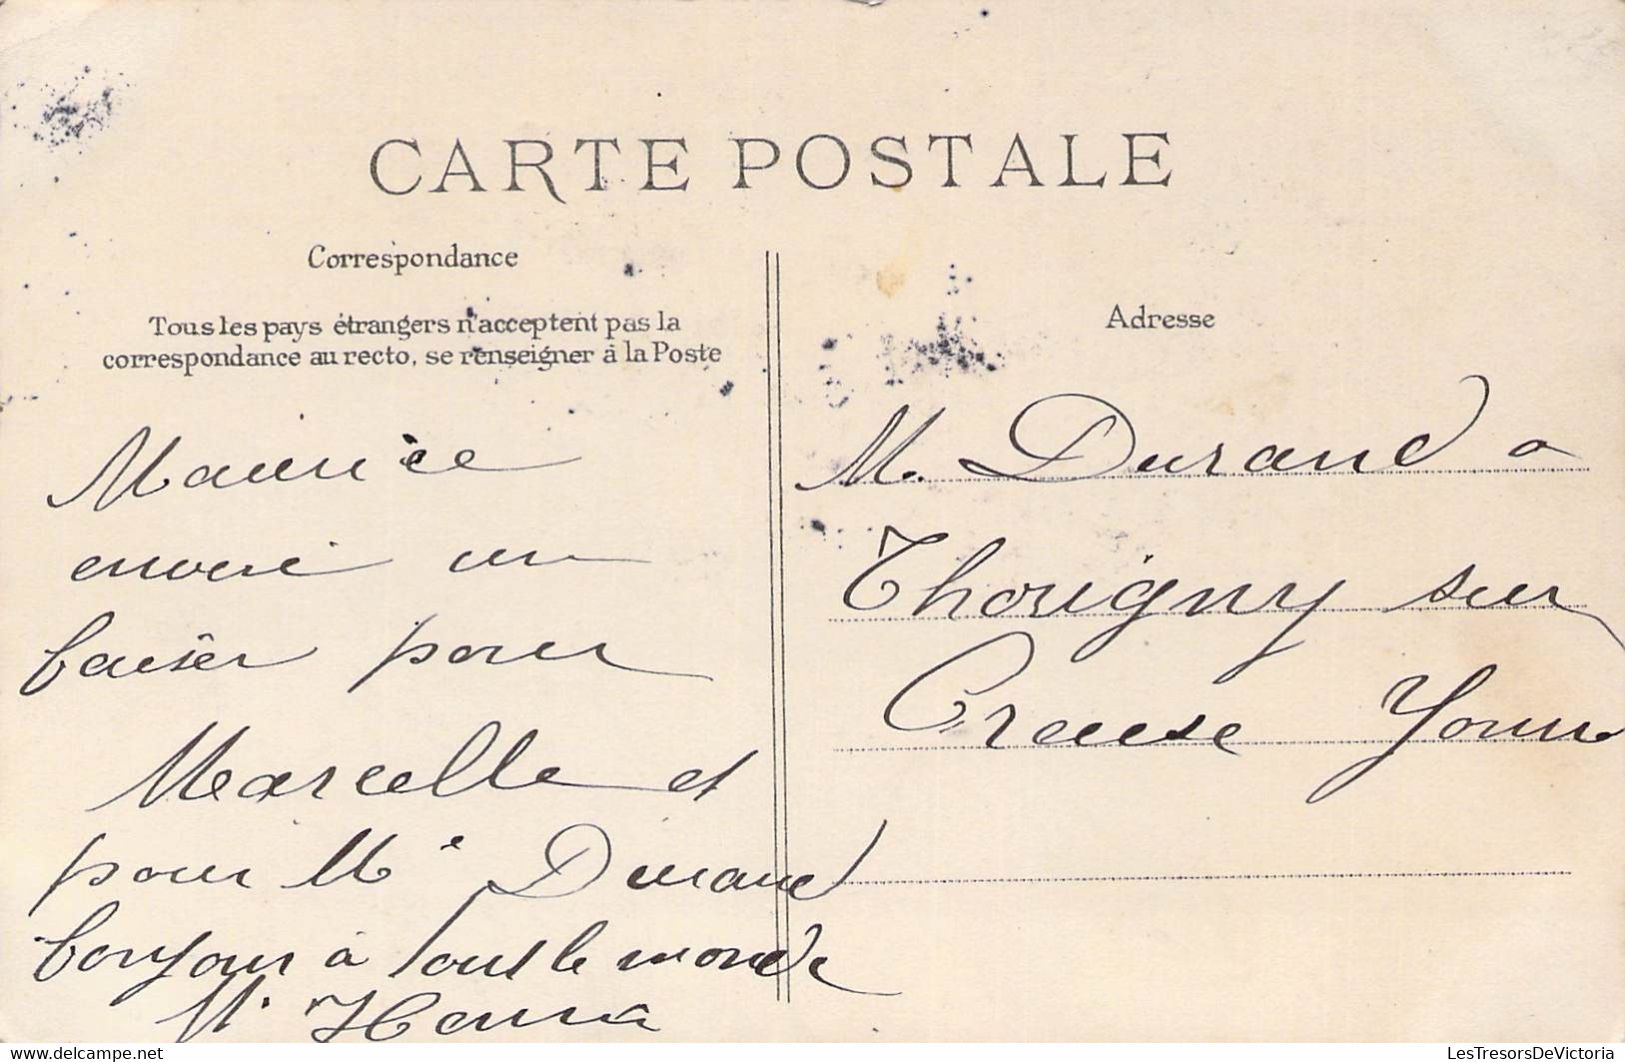 CARTE POSTALE
Correspondance
Tous les pays étrangers n'acceptent pas la
correspondance au recto, se renseigner à la Poste
Maurice
envoie un
baiser pour
Marcelle et
pour Me Durand
bonjour à tout le monde
M.
Adresse
M. Durand a
Thorigny sur
Creuse Yonne
LesTresorsDeVictoria